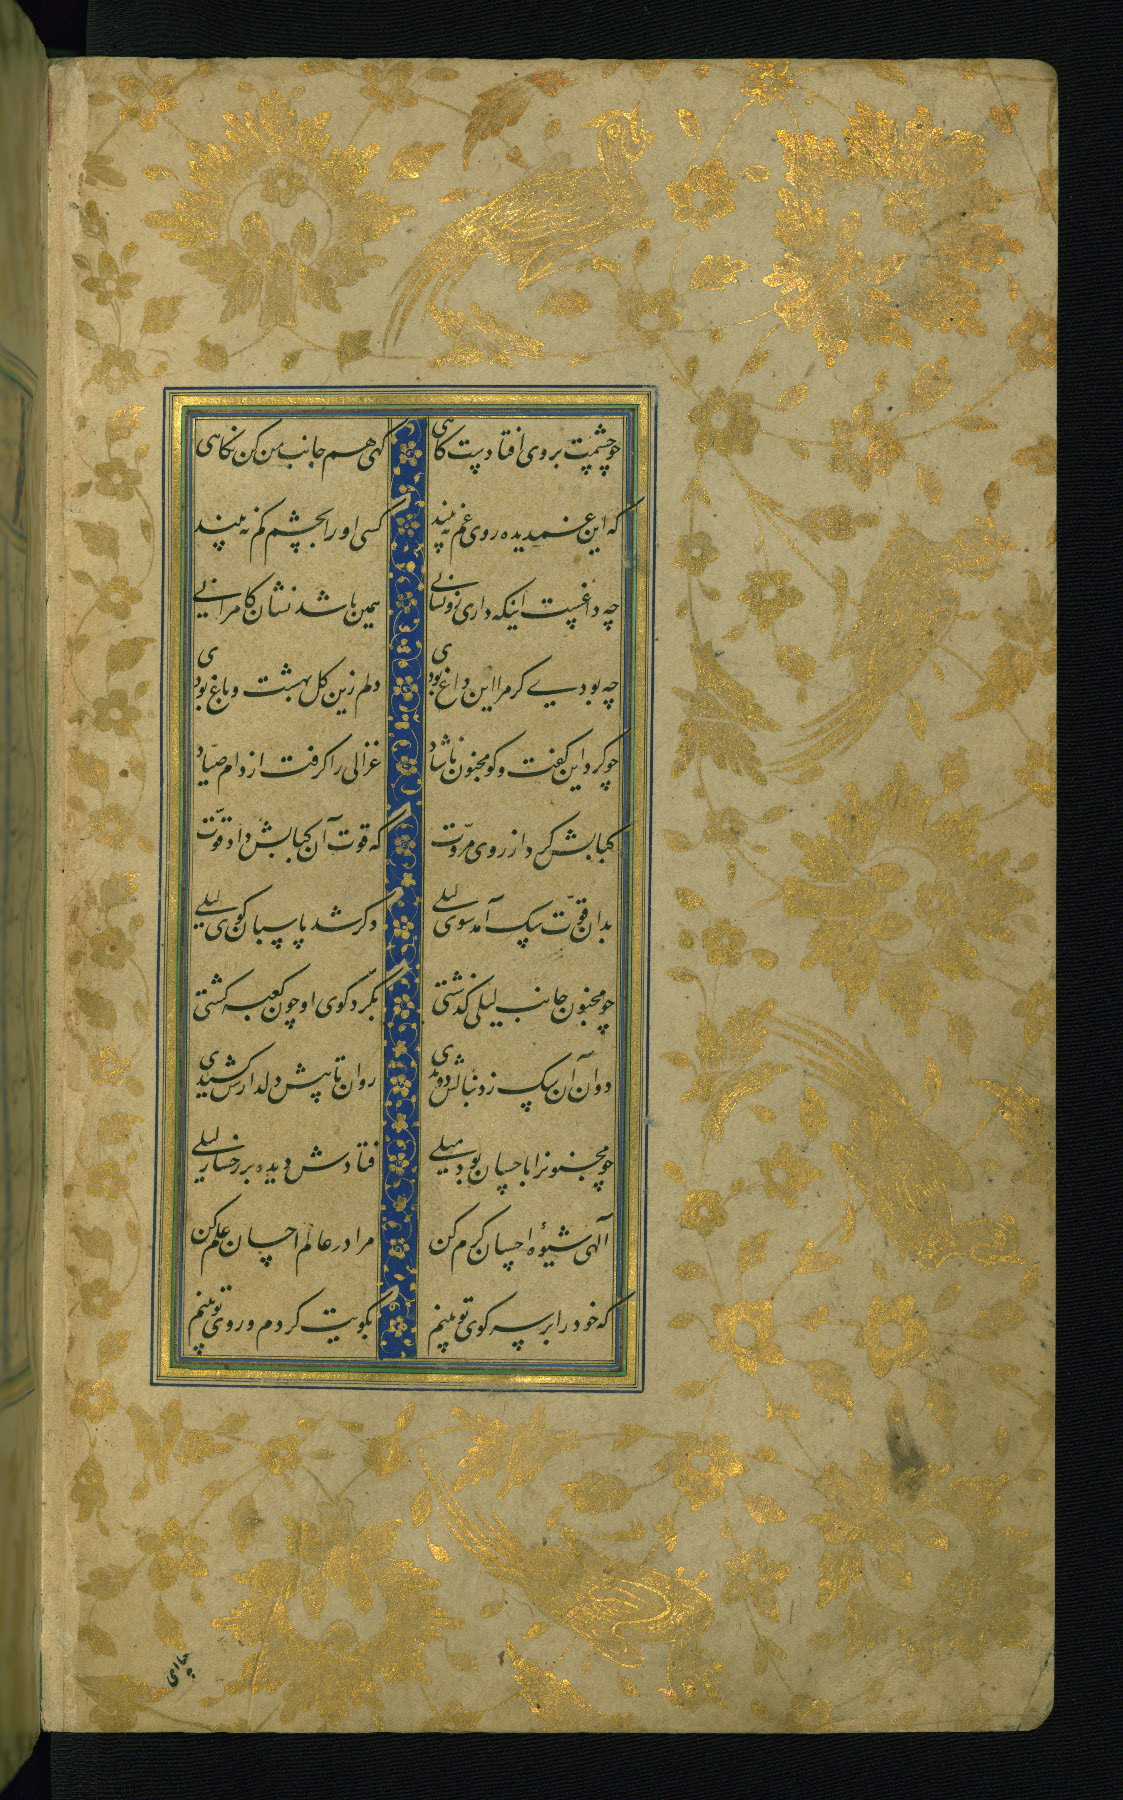 چو چشمت بر وی افتادست کاهی کهی هم جانب من کن نکاهی
که این غمدیده روی غم نه بیند کسی او را بچشم کم نه بیند
چه داغست اینکه داری زو نشانی همین باشد نشان کامرانی
چه بودی کر مرا این داغ بودی دلم زین کل بهشت و باغ بودی
چو کرد این کفت و کو مجنون ناشاد غزالی را کرفت از دام صیاد
کبابش کرد از روی مروّت که قوت آن کبابش داد قوّت
بدان قوّت سک آمد سوی لیلی دکر شد پاسبان کوی لیلی
چو مجنون جانب لیلی کذشتی بکرد کوی او چون کعبه کشتی
دوان آن سک ز دنبالش دویدی روان تا پیش دلدارش کشیدی
چو مجنونرا باحسان بود میلی فتادش دیده بر رخسار لیلی
آلهی شیوهٔ احسان کرم کن مرا در عالم احسان علم کن
که خود را بر سر کوی تو بینم بکویت کردم و روی تو بینم